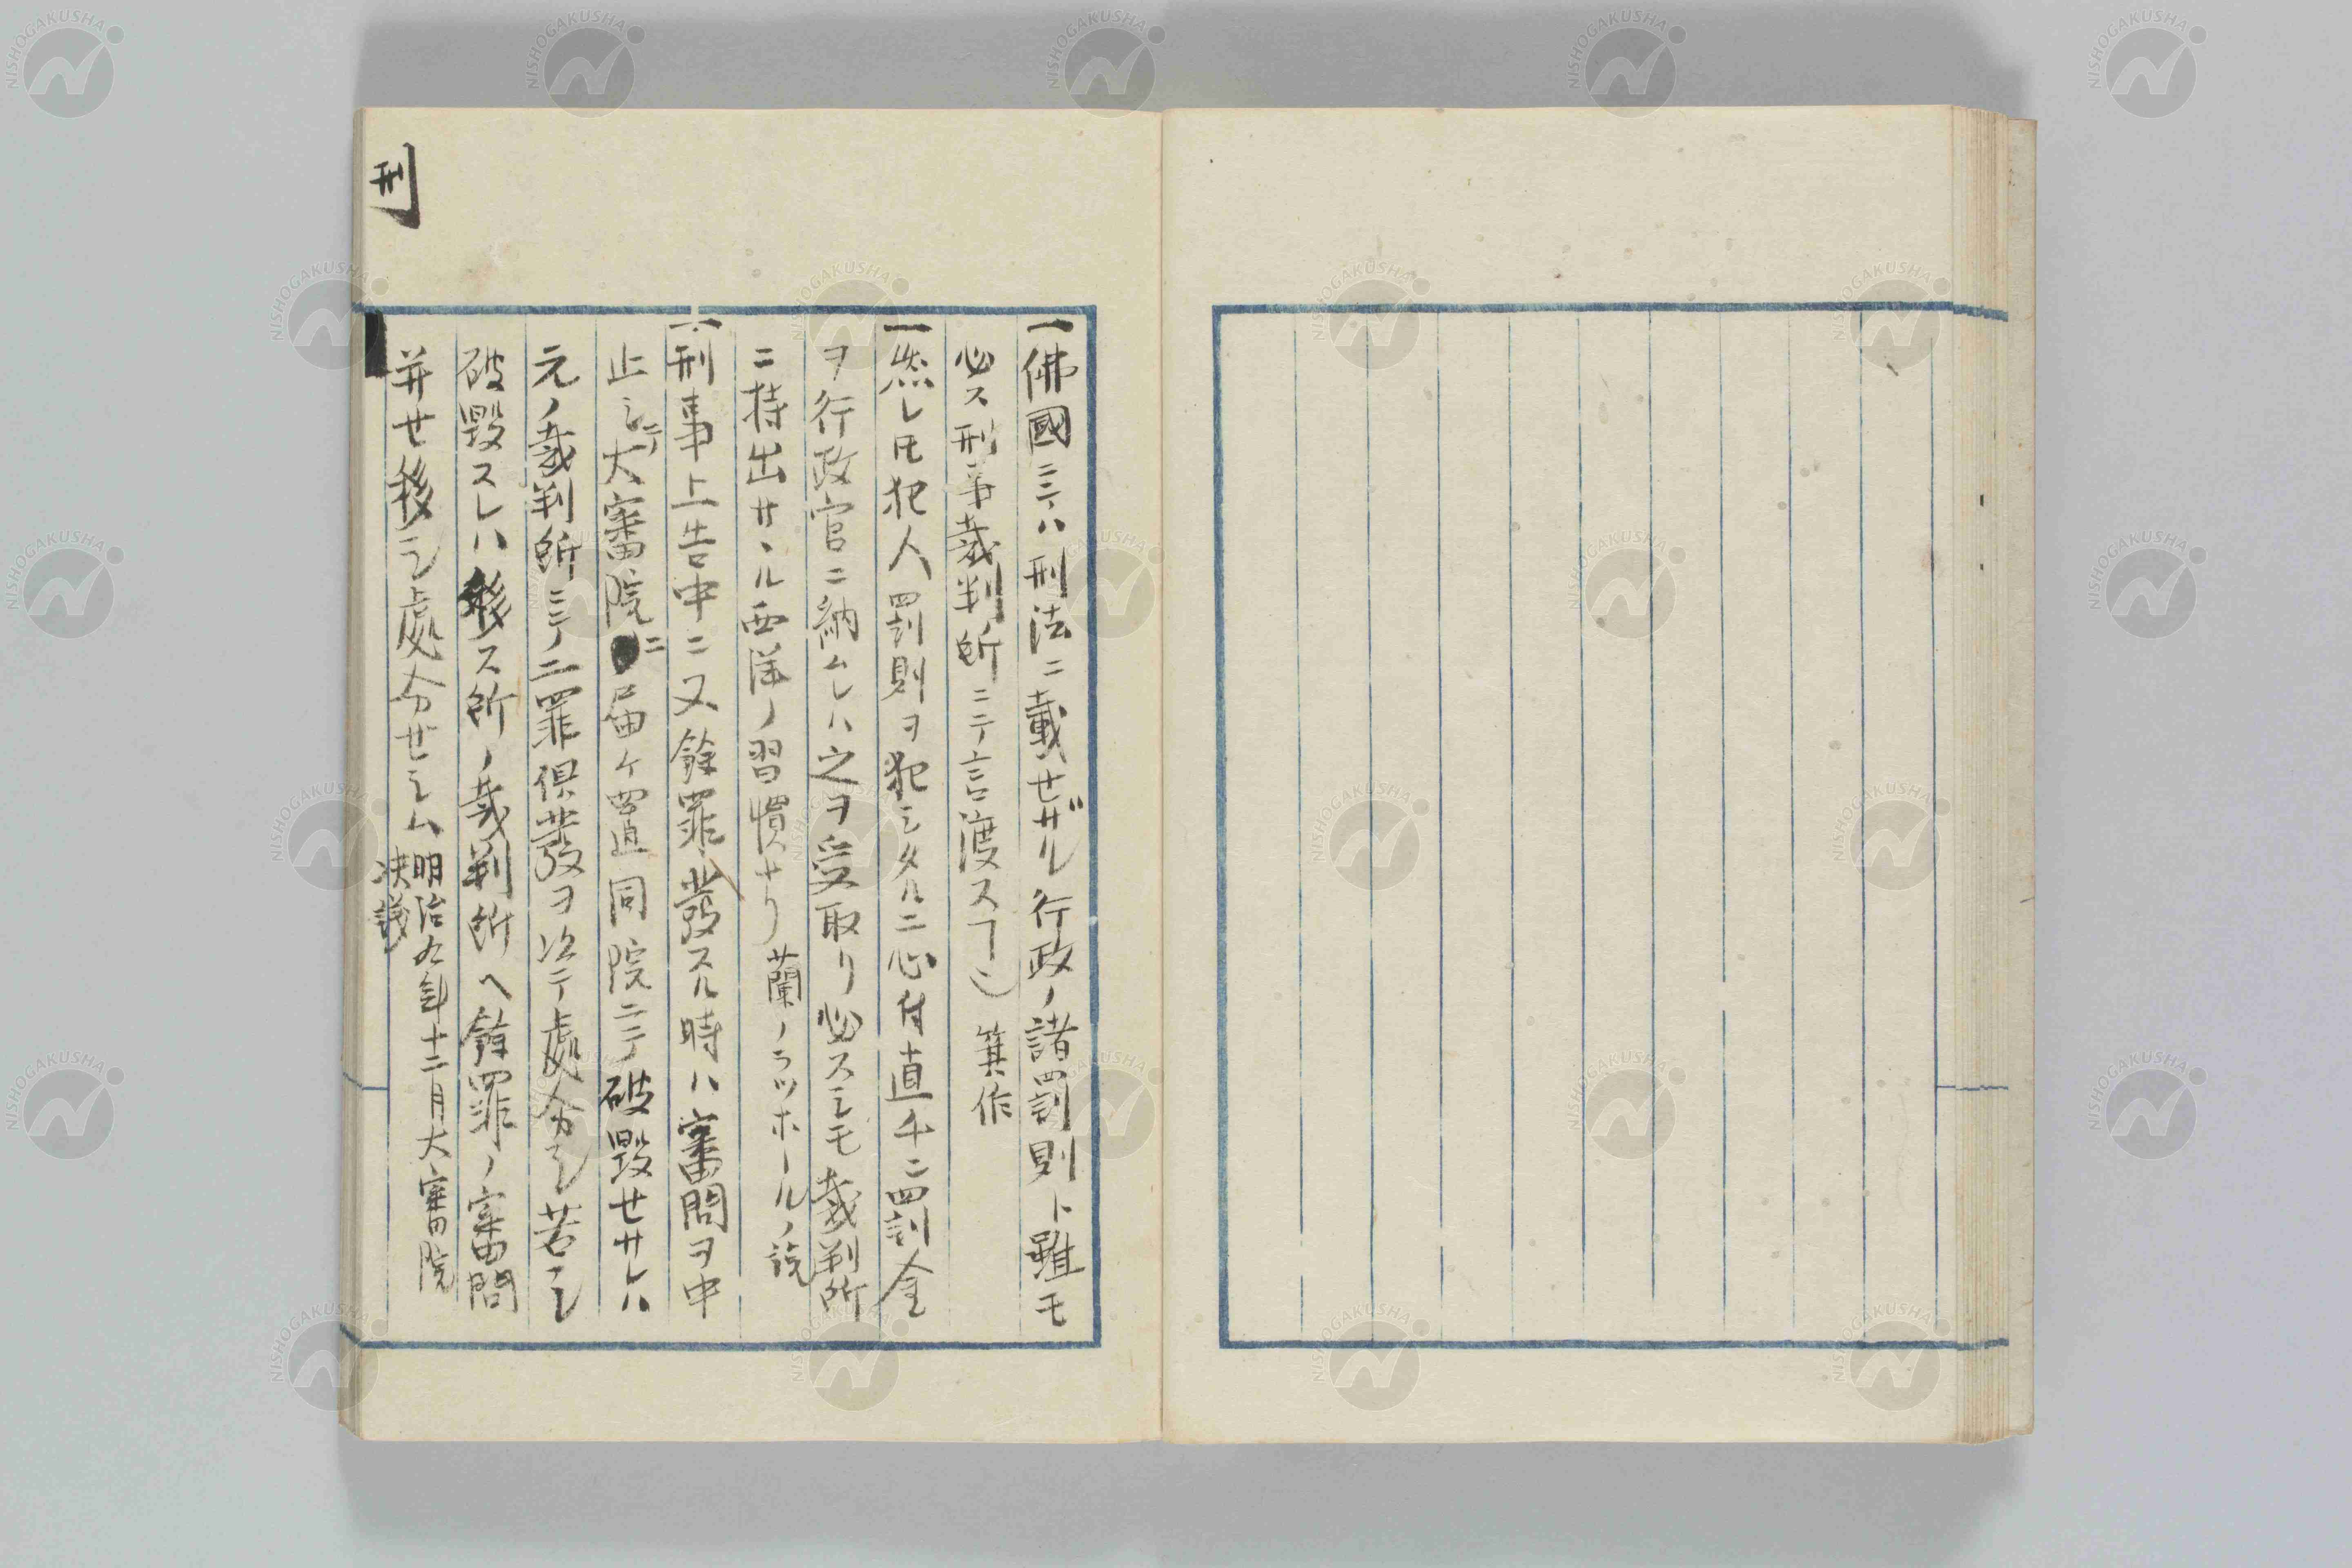 一佛國ニテハ刑法ニ載セザル行政ノ諸罰則ト雖モ
必ス刑事裁判所ニテ言渡スヿ 箕作
一然レ𪜈犯人罰則ヲ犯シタルニ心付直チニ罰金
ヲ行政官ニ納ムレハ之ヲ受取リ必スシモ裁判所
ニ持出サヽル西洋ノ習慣ナリ 蘭ノラツホールノ説
一刑事上告中ニ又餘罪發スル時ハ審問ヲ中
止シテ大審院ニ届ケ置同院ニテ破毀セサレハ
元ノ裁判所ニテノ二罪倶發ヲ以テ處分シ若シ
破毀スレハ移ス所ノ裁判所ヘ餘罪ノ審問
并セ移シ處分セシム 明治九年十二月大審院
決議
刑
NISHOGAKUSHA